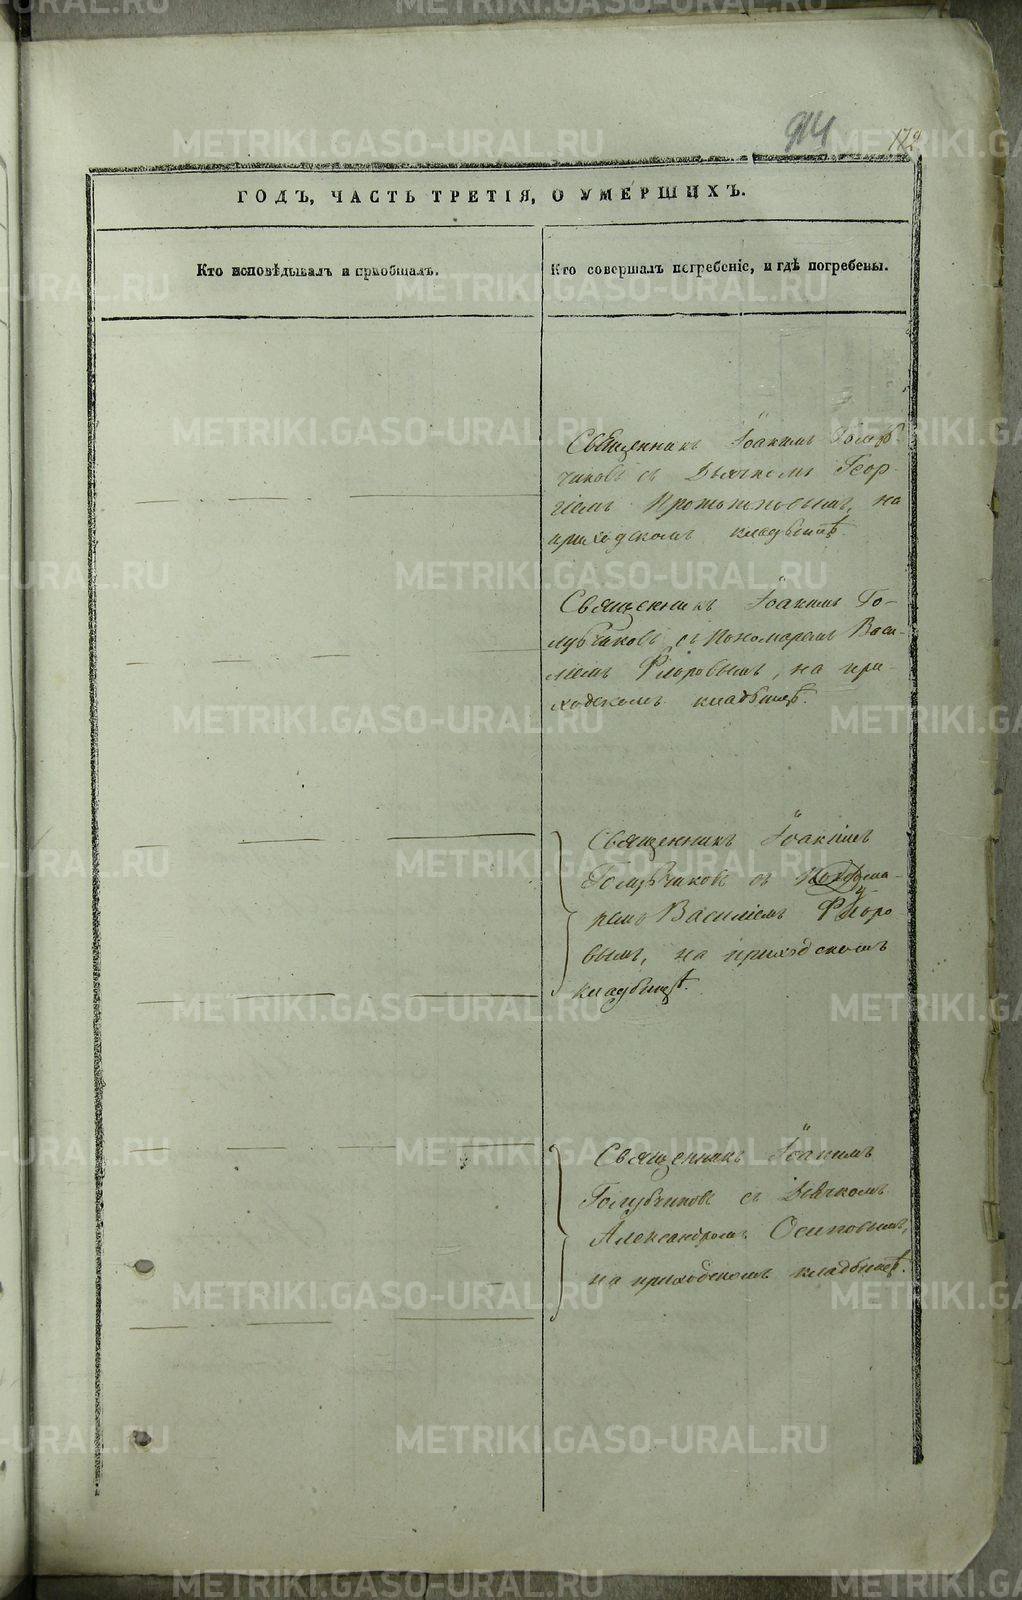 914 172
ГОДЪ, ЧАСТЬ ТРЕТІЯ, О УМЕРШИХЪ.
Кто исповѣдывалъ и пріобщалъ.
Кто совершалъ погребеніе, и гдѣ погребены.
Священникъ Іоакимъ Голуб-
чиковъ съ Дьячкомъ Геор-
гіемъ на
приходскомъ кладбищѣ.
Священникъ Іоакимъ Го-
лубчиковъ съ Пономаремъ Васи-
ліемъ Флоровымъ, на при-
ходскомъ кладбищѣ.
Священникъ Іоакимъ
Голубчиковъ съ Понома-
ремъ Василіемъ Флоро
вымъ, на приходскомъ
кладбищѣ.
Священникъ Іоакимъ
Голубчиковъ съ Дьячкомъ
Александромъ Осиповымъ,
на приходскомъ кладбищѣ.
METRIKI.GASO-URAL.RU